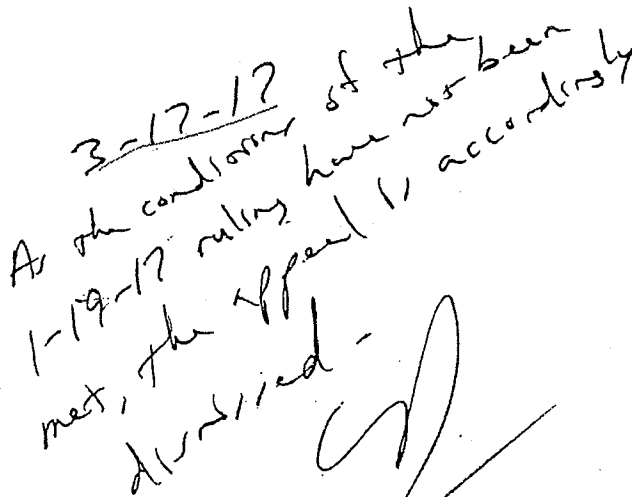 3-17-17
As the conditions of the
1-19-17 ruling have not been
met, the appeal is accordingly
dismissed -